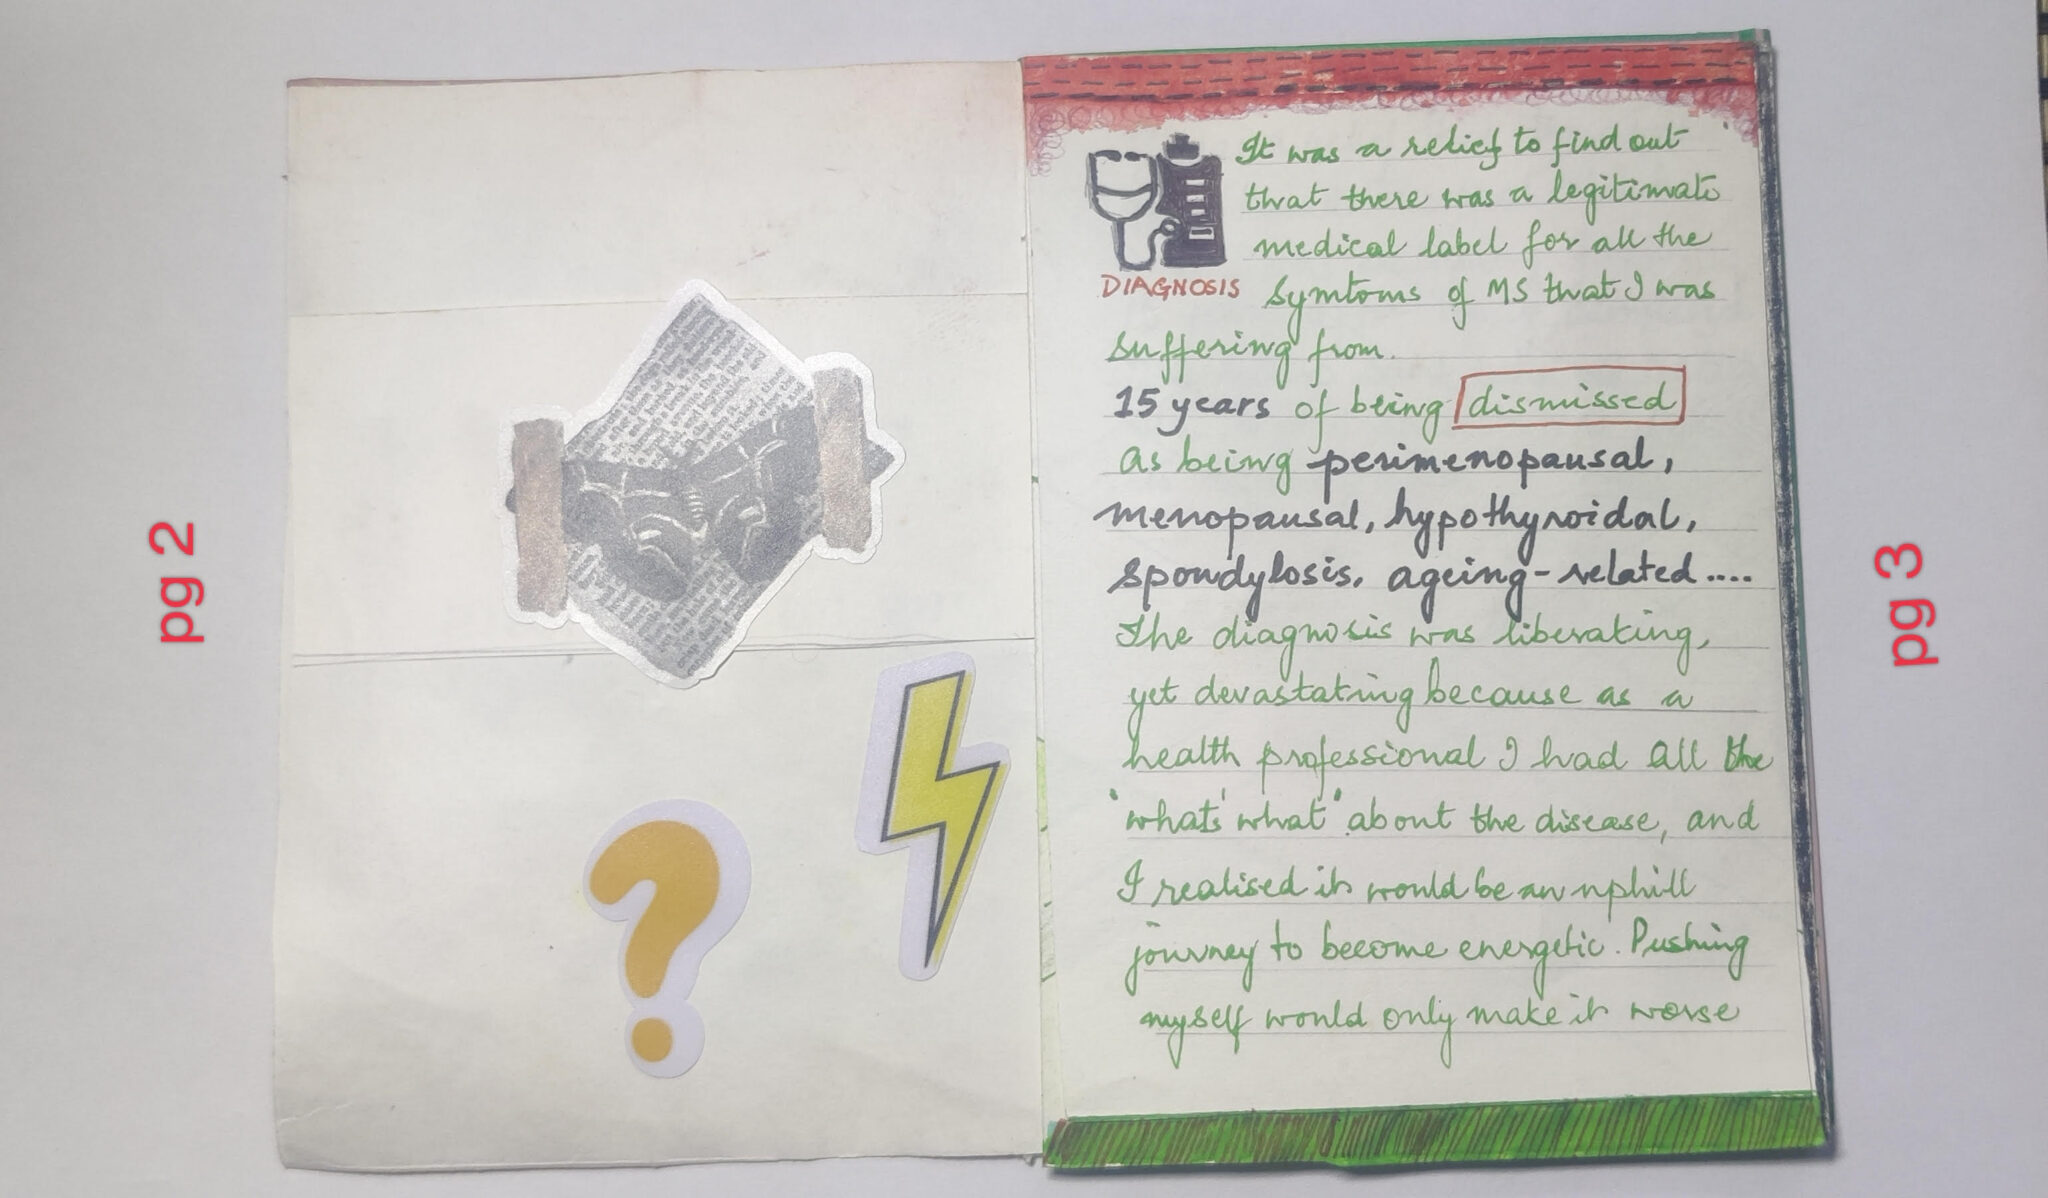 pg 2
It was a relief to find out
that there was a legitimate
medical label for all the
DIAGNOSIS
symtoms of MS that I was
suffering from.
15 years of being dismissed
as being perimenopausal,
menopausal, hypothyroidal,
spondylosis, ageing-related....
The diagnosis was liberating,
yet devastating because as a
health professional I had all the
'what's what' about the disease, and
I realised it would be an uphill
journey to become energetic. Pushing
myself would only make it worse
pg 3